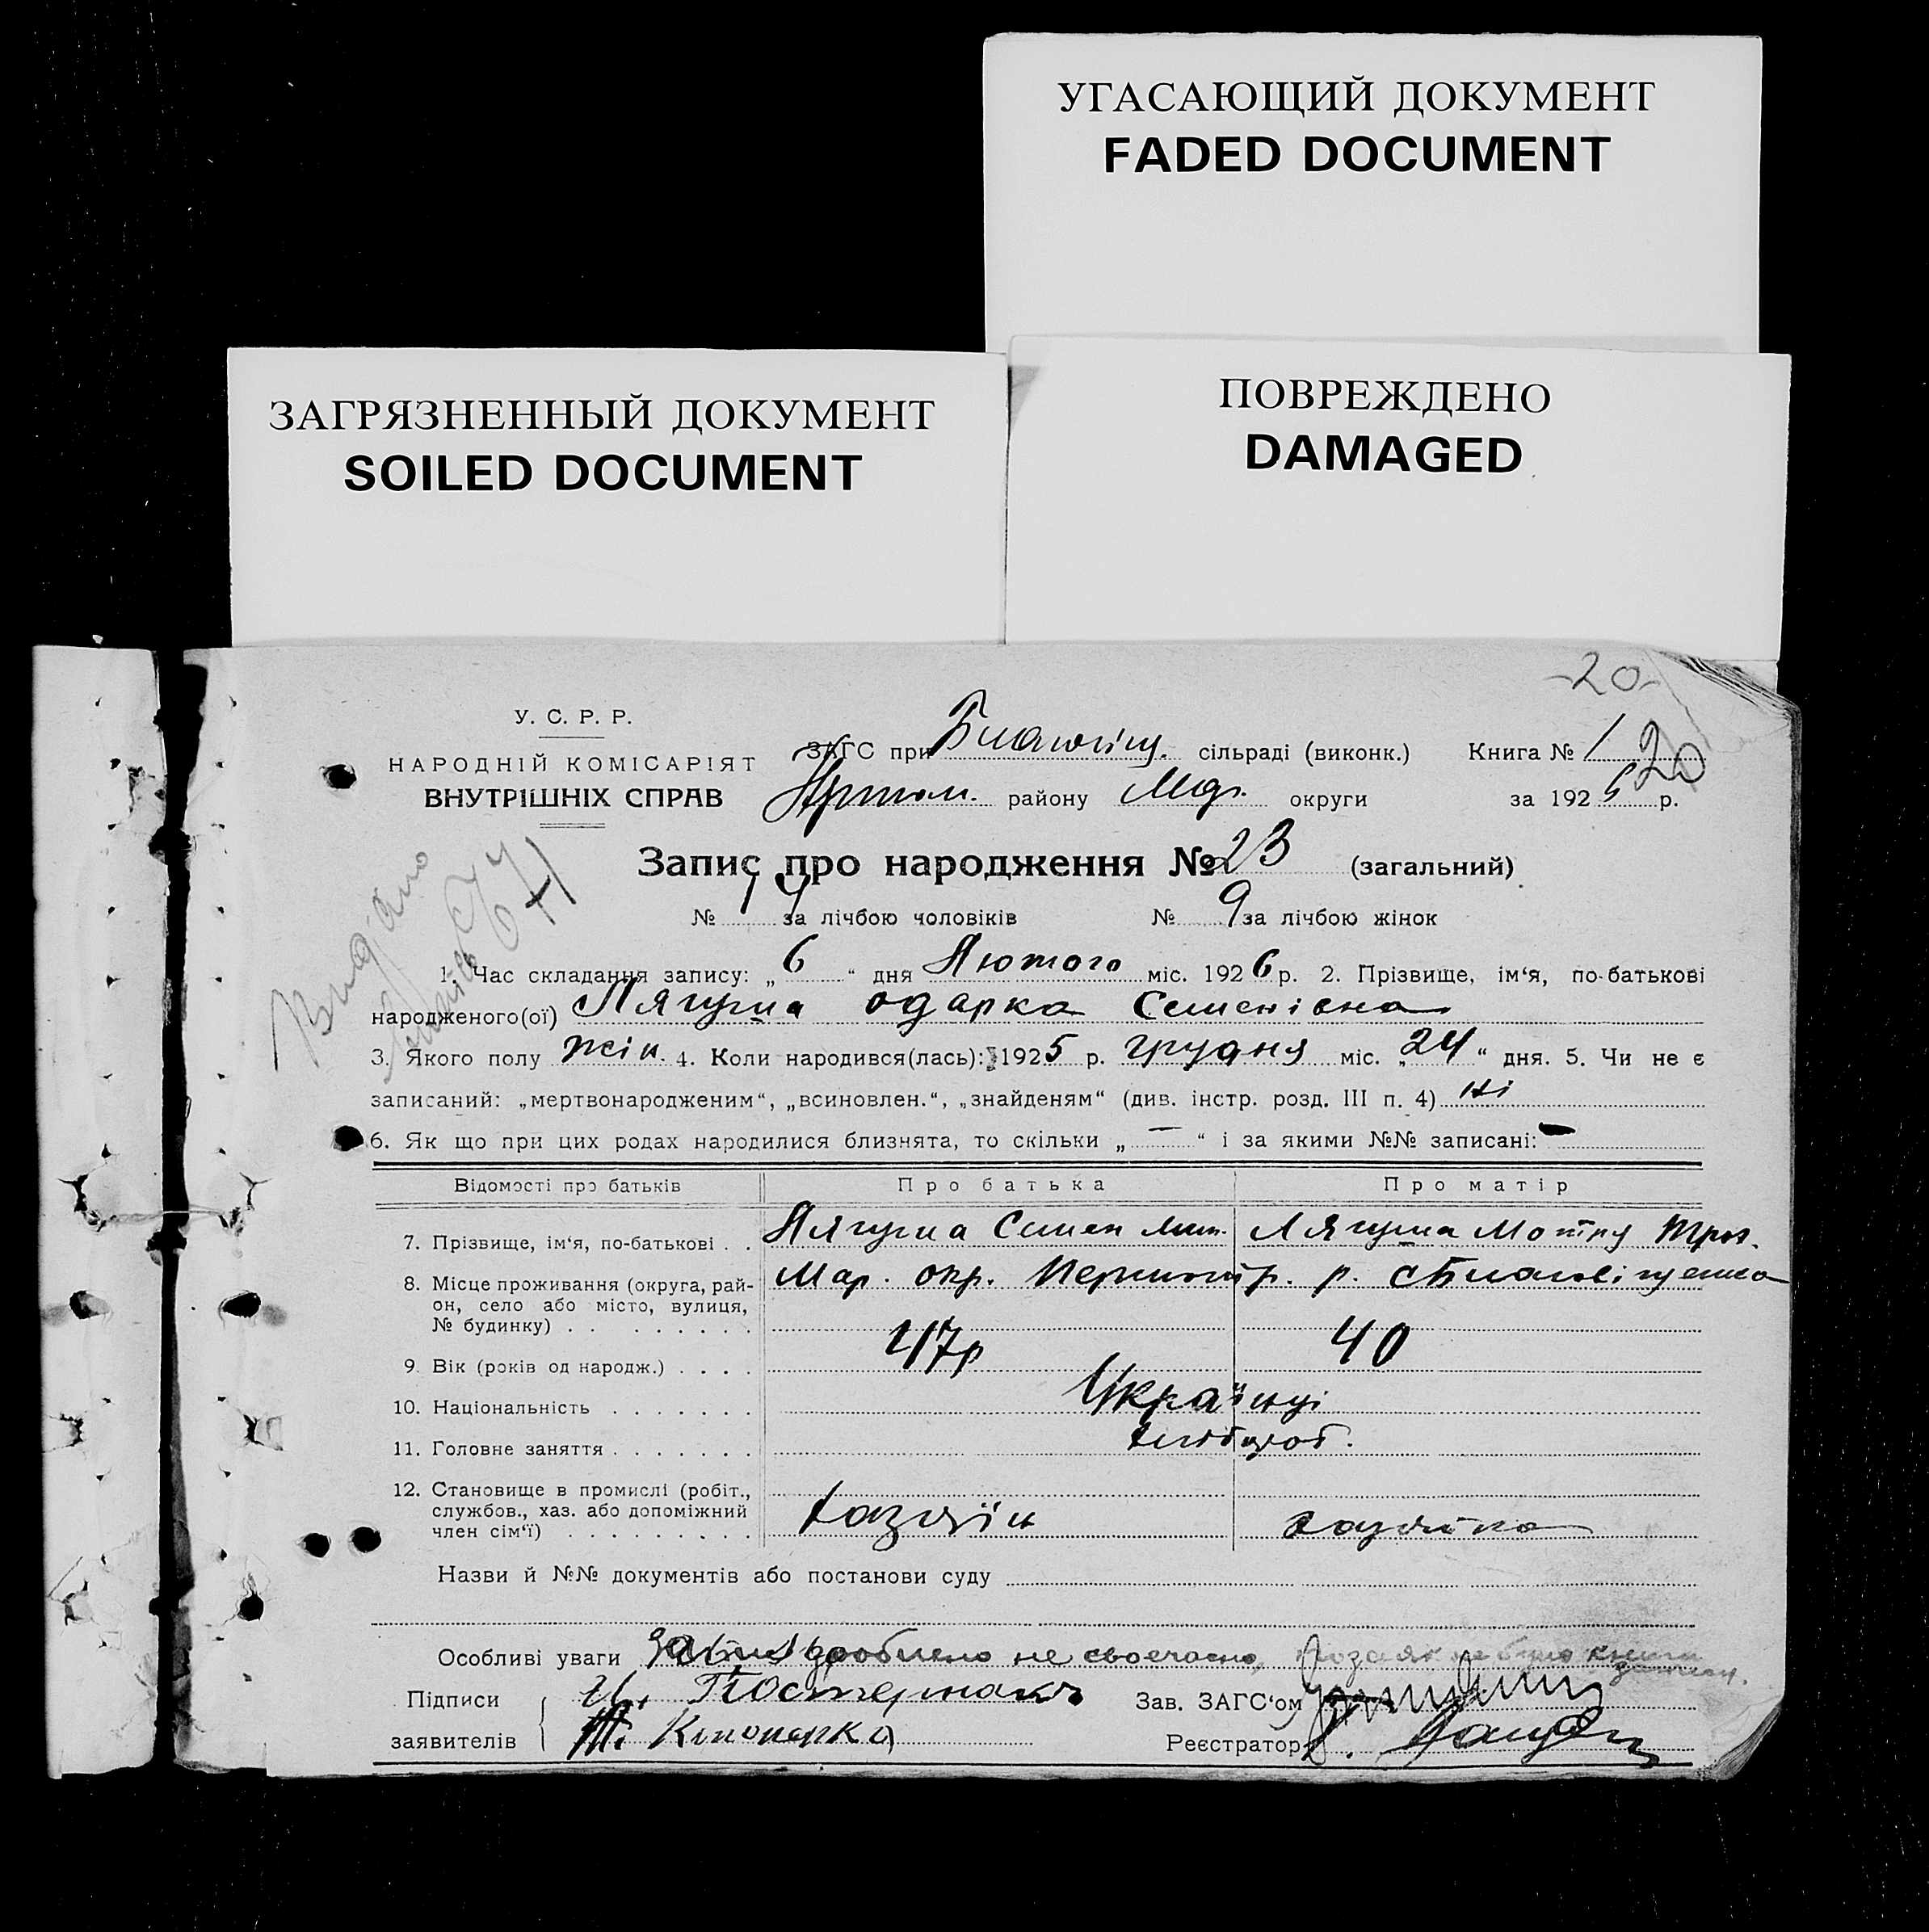 УГАСАЮЩИЙ ДОКУМЕНТ
FADED DOCUMENT
ЗАГРЯЗНЕННЫЙ ДОКУМЕНТ
SOILED DOCUMENT
ПОВРЕЖДЕНО
DAMAGED
-20-
У. С. Р. Р.
НАРОДНІЙ КОМІСАРІЯТ
ВНУТРІШНІХ СПРАВ
ЗАГС при сільраді (виконк.) Книга № 1 20
району округи за 1925 р.
Видано
Запис про народження № 23 (загальний)
№ 14 за лічбою чоловіків № 9 за лічбою жінок
1. Час складання запису: „ 6 “ дня Лютого міс. 1926 р. 2. Прізвище, ім‘я, по-батькові
народженого(ої) Лягуша Одарка Семенівна
3. Якого полу жін. 4. Коли народився(лась): 1925 р. грудня міс. „ 24 “ дня. 5. Чи не є
записаний: „мертвонародженим“, „всиновлен.“, „знайденям“ (див. інстр. розд. III п. 4) ні
6. Як що при цих родах народилися близнята, то скільки „ — “ і за якими №№ записані: —
Відомості про батьків Про батька Про матір
7. Прізвище, ім‘я, по-батькові . . Лягуша Семен Лягуша Мотря
8. Місце проживання (округа, рай-
он, село або місто, вулиця,
№ будинку) . . . . . . . . Мар. окр. р.
9. Вік (років од народж.) . . . . 47р 40
10. Національність . . . . . . . Українці
11. Головне заняття . . . . . . . хлібороб.
12. Становище в промислі (робіт.,
службов., хаз. або допоміжний
член сім‘ї) . . . . . . . . . хазяїн хазяйка
Назви й №№ документів або постанови суду
Особливі уваги Запис зроблено не своечасно, позаяк не було книги
записи.
Підписи Зав. ЗАГС‘ом
заявителів Реєстратор